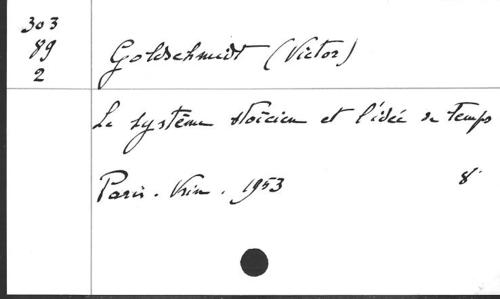 303
89
2
Goldschmidt (Victor)
Le système stoïcien et l'idée de temps
Paris. Vrin. 1953 8°